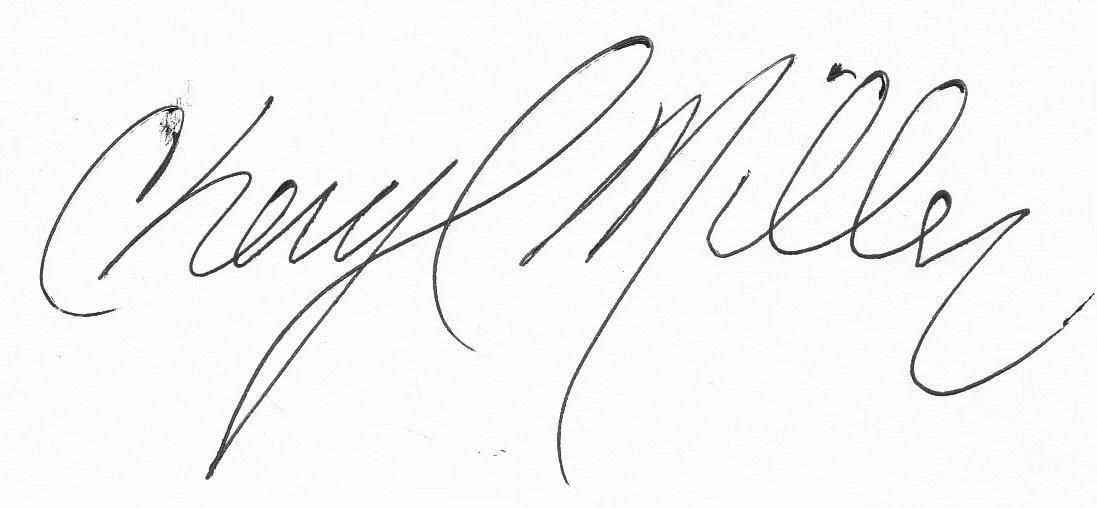 Cheryl Miller